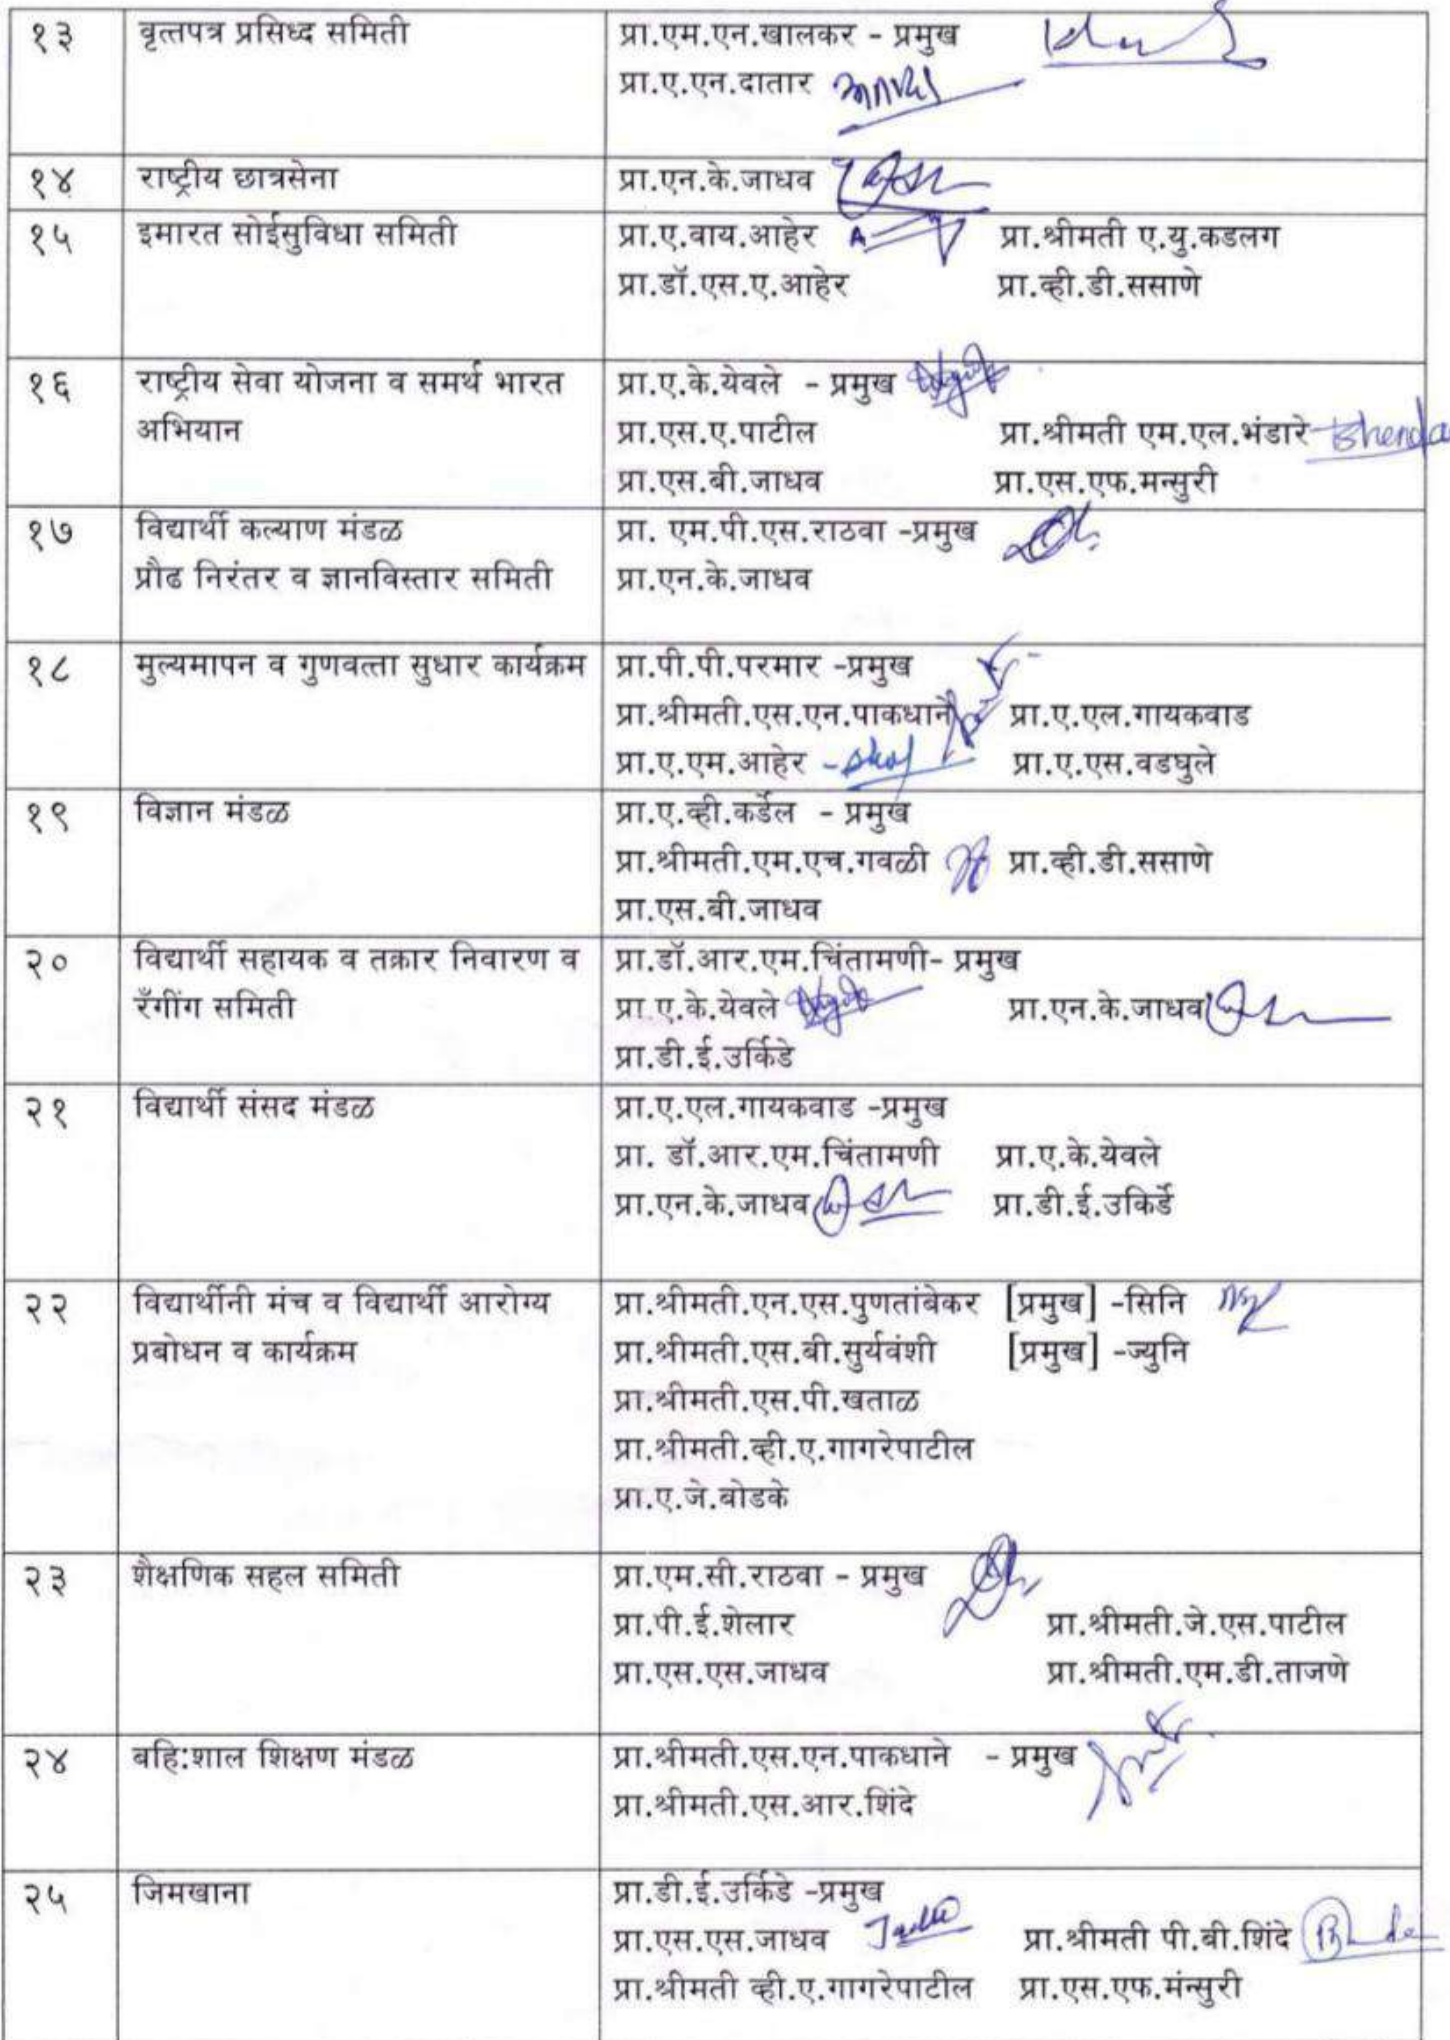 १३ वृत्तपत्र प्रसिध्द समिती प्रा.एम.एन.खालकर - प्रमुख
प्रा.ए.एन.दातार
१४ राष्ट्रीय छात्रसेना प्रा.एन.के.जाधव
१५ इमारत सोईसुविधा समिती प्रा.ए.वाय.आहेर प्रा.श्रीमती ए.यु.कडलग
प्रा.डॉ.एस.ए.आहेर प्रा.व्ही.डी.ससाणे
१६ राष्ट्रीय सेवा योजना व समर्थ भारत प्रा.ए.के.येवले - प्रमुख
अभियान प्रा.एस.ए.पाटील प्रा.श्रीमती एम.एल.भंडारे
प्रा.एस.बी.जाधव प्रा.एस.एफ.मन्सुरी
१७ विद्यार्थी कल्याण मंडळ प्रा. एम.पी.एस.राठवा -प्रमुख
प्रौढ निरंतर व ज्ञानविस्तार समिती प्रा.एन.के.जाधव
१८ मुल्यमापन व गुणवत्ता सुधार कार्यक्रम प्रा.पी.पी.परमार -प्रमुख
प्रा.श्रीमती.एस.एन.पाकधाने प्रा.ए.एल.गायकवाड
प्रा.ए.एम.आहेर प्रा.ए.एस.वडघुले
१९ विज्ञान मंडळ प्रा.ए.व्ही.कर्डेल - प्रमुख
प्रा.श्रीमती.एम.एच.गवळी प्रा.व्ही.डी.ससाणे
प्रा.एस.बी.जाधव
२० विद्यार्थी सहायक व तक्रार निवारण व प्रा.डॉ.आर.एम.चिंतामणी- प्रमुख
रॅंगींग समिती प्रा.ए.के.येवले प्रा.एन.के.जाधव
प्रा.डी.ई.उर्किडे
२१ विद्यार्थी संसद मंडळ प्रा.ए.एल.गायकवाड -प्रमुख
प्रा. डॉ.आर.एम.चिंतामणी प्रा.ए.के.येवले
प्रा.एन.के.जाधव प्रा.डी.ई.उकिर्डे
२२ विद्यार्थीनी मंच व विद्यार्थी आरोग्य प्रा.श्रीमती.एन.एस.पुणतांबेकर [प्रमुख] -सिनि
प्रबोधन व कार्यक्रम प्रा.श्रीमती.एस.बी.सुर्यवंशी [प्रमुख] -ज्युनि
प्रा.श्रीमती.एस.पी.खताळ
प्रा.श्रीमती.व्ही.ए.गागरेपाटील
प्रा.ए.जे.बोडके
२३ शैक्षणिक सहल समिती प्रा.एम.सी.राठवा - प्रमुख
प्रा.पी.ई.शेलार प्रा.श्रीमती.जे.एस.पाटील
प्रा.एस.एस.जाधव प्रा.श्रीमती.एम.डी.ताजणे
२४ बहि:शाल शिक्षण मंडळ प्रा.श्रीमती.एस.एन.पाकधाने - प्रमुख
प्रा.श्रीमती.एस.आर.शिंदे
२५ जिमखाना प्रा.डी.ई.उर्किडे -प्रमुख
प्रा.एस.एस.जाधव प्रा.श्रीमती पी.बी.शिंदे
प्रा.श्रीमती व्ही.ए.गागरेपाटील प्रा.एस.एफ.मंन्सुरी